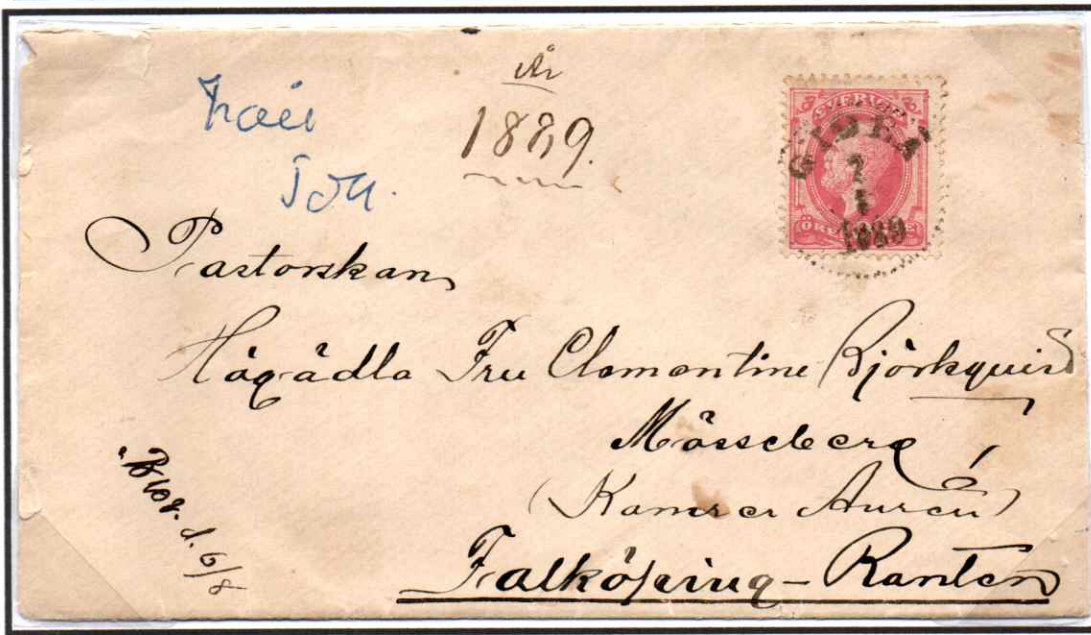 År
1889.
SVERIGE
GIDEÅ
2
8
1889
ÖRE
Pastorskan
Högädla Fru Clementine Björkquist
Mösseberg
(Kamrer Aurén)
Falköping-Ranten
d. 6/8